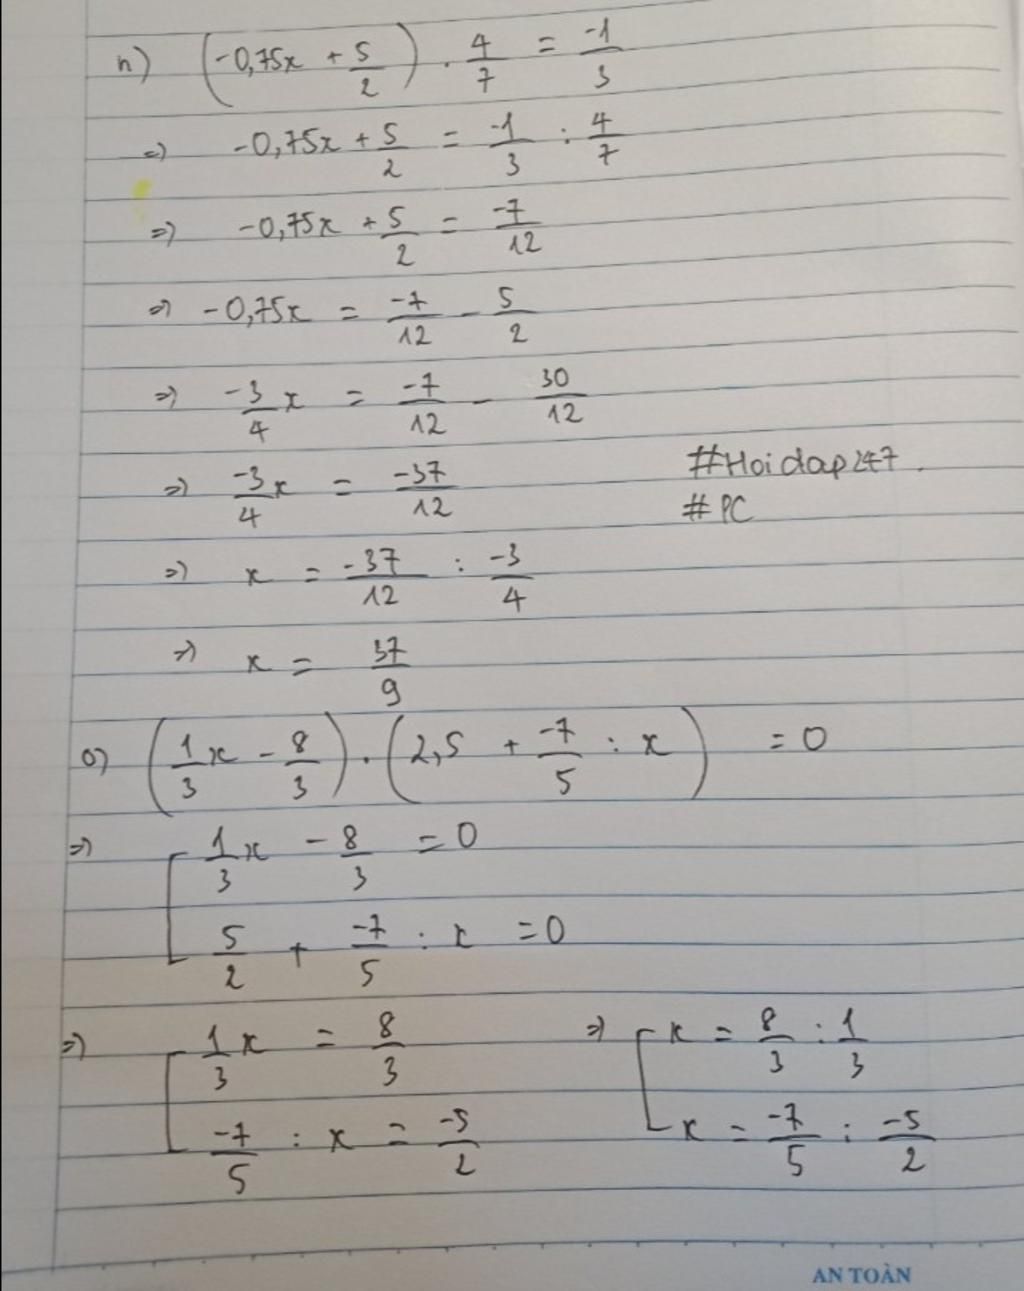 n) (-0,75x + 5/2) . 4/7 = -1/3
=> -0,75x + 5/2 = -1/3 : 4/7
=> -0,75x + 5/2 = -7/12
=> -0,75x = -7/12 - 5/2
=> -3/4 x = -7/12 - 30/12
=> -3/4 x = -37/12
#Hoidap247.
#PC
=> x = -37/12 : -3/4
=> x = 37/9
o) (1/3 x - 8/3) . (2,5 + -7/5 : x) = 0
=> [ 1/3 x - 8/3 = 0
5/2 + -7/5 : x = 0
=> [ 1/3 x = 8/3 => [ x = 8/3 : 1/3
-7/5 : x = -5/2 x = -7/5 : -5/2
AN TOÀN